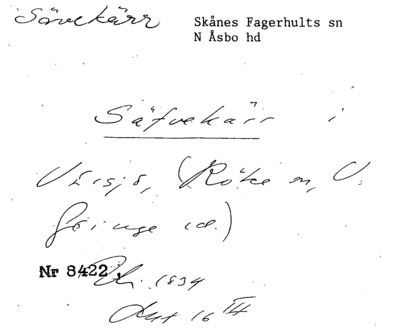 Sävekärr
Skånes Fagerhults sn
N Åsbo hd
Säfvekärr i
Virsjö, (Röke sn, V.
Göinge
Nr 8422. 1834
16